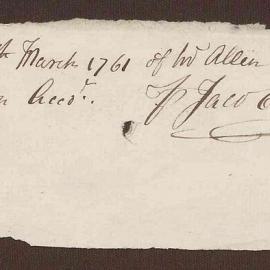 th March 1761 of Wm Allen
Accot.
Jacob